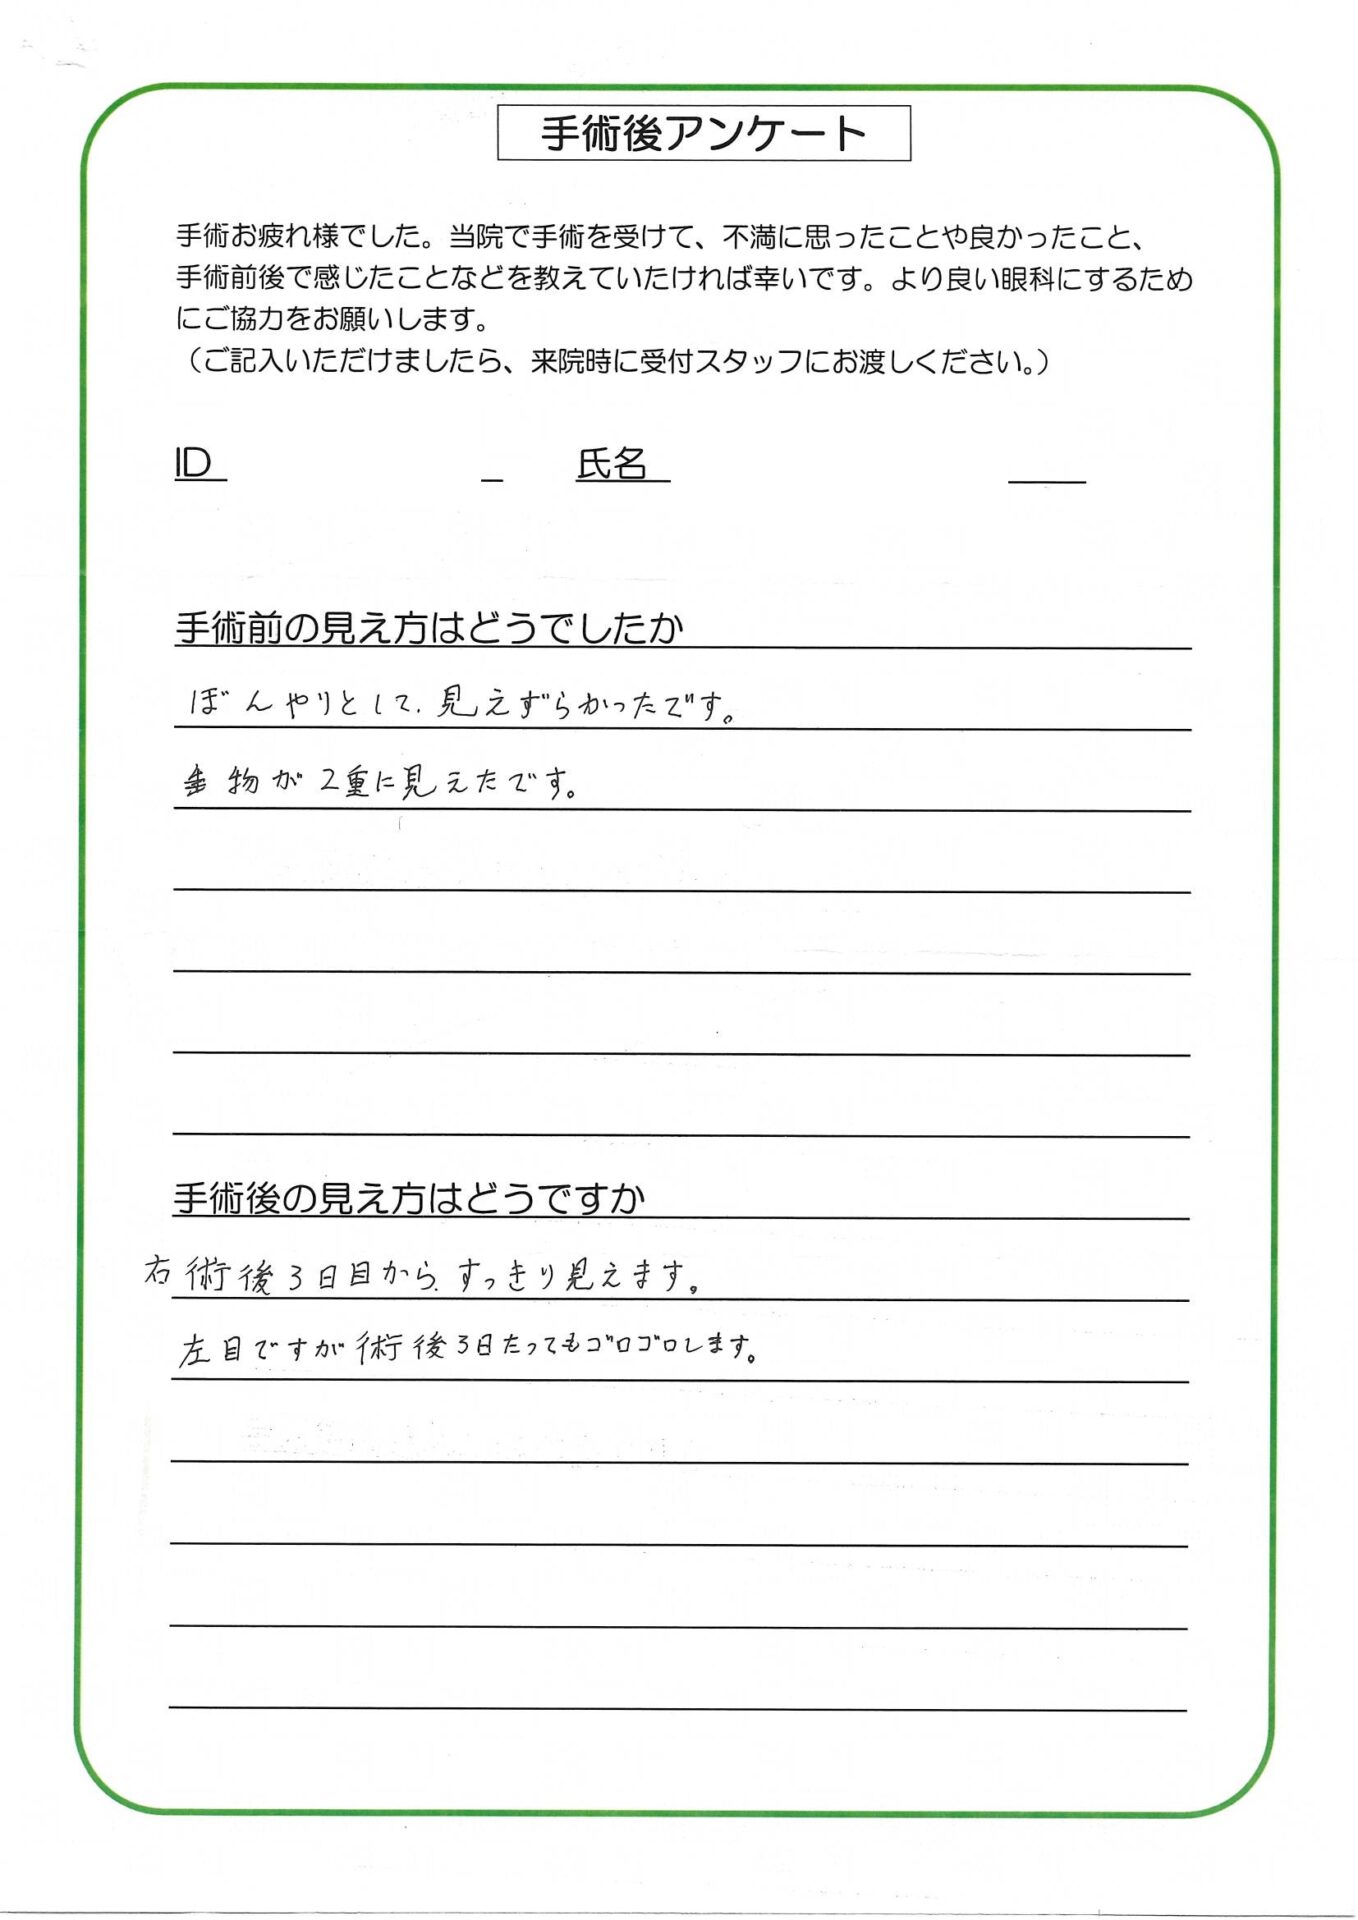 手術後アンケート
手術お疲れ様でした。当院で手術を受けて、不満に思ったことや良かったこと、
手術前後で感じたことなどを教えていたければ幸いです。より良い眼科にするため
にご協力をお願いします。
（ご記入いただけましたら、来院時に受付スタッフにお渡しください。）
ID 氏名
手術前の見え方はどうでしたか
ぼんやりとして、見えずらかったです。
物が2重に見えたです。
手術後の見え方はどうですか
右術後3日目から、すっきり見えます。
左目ですが術後3日たってもゴロゴロします。